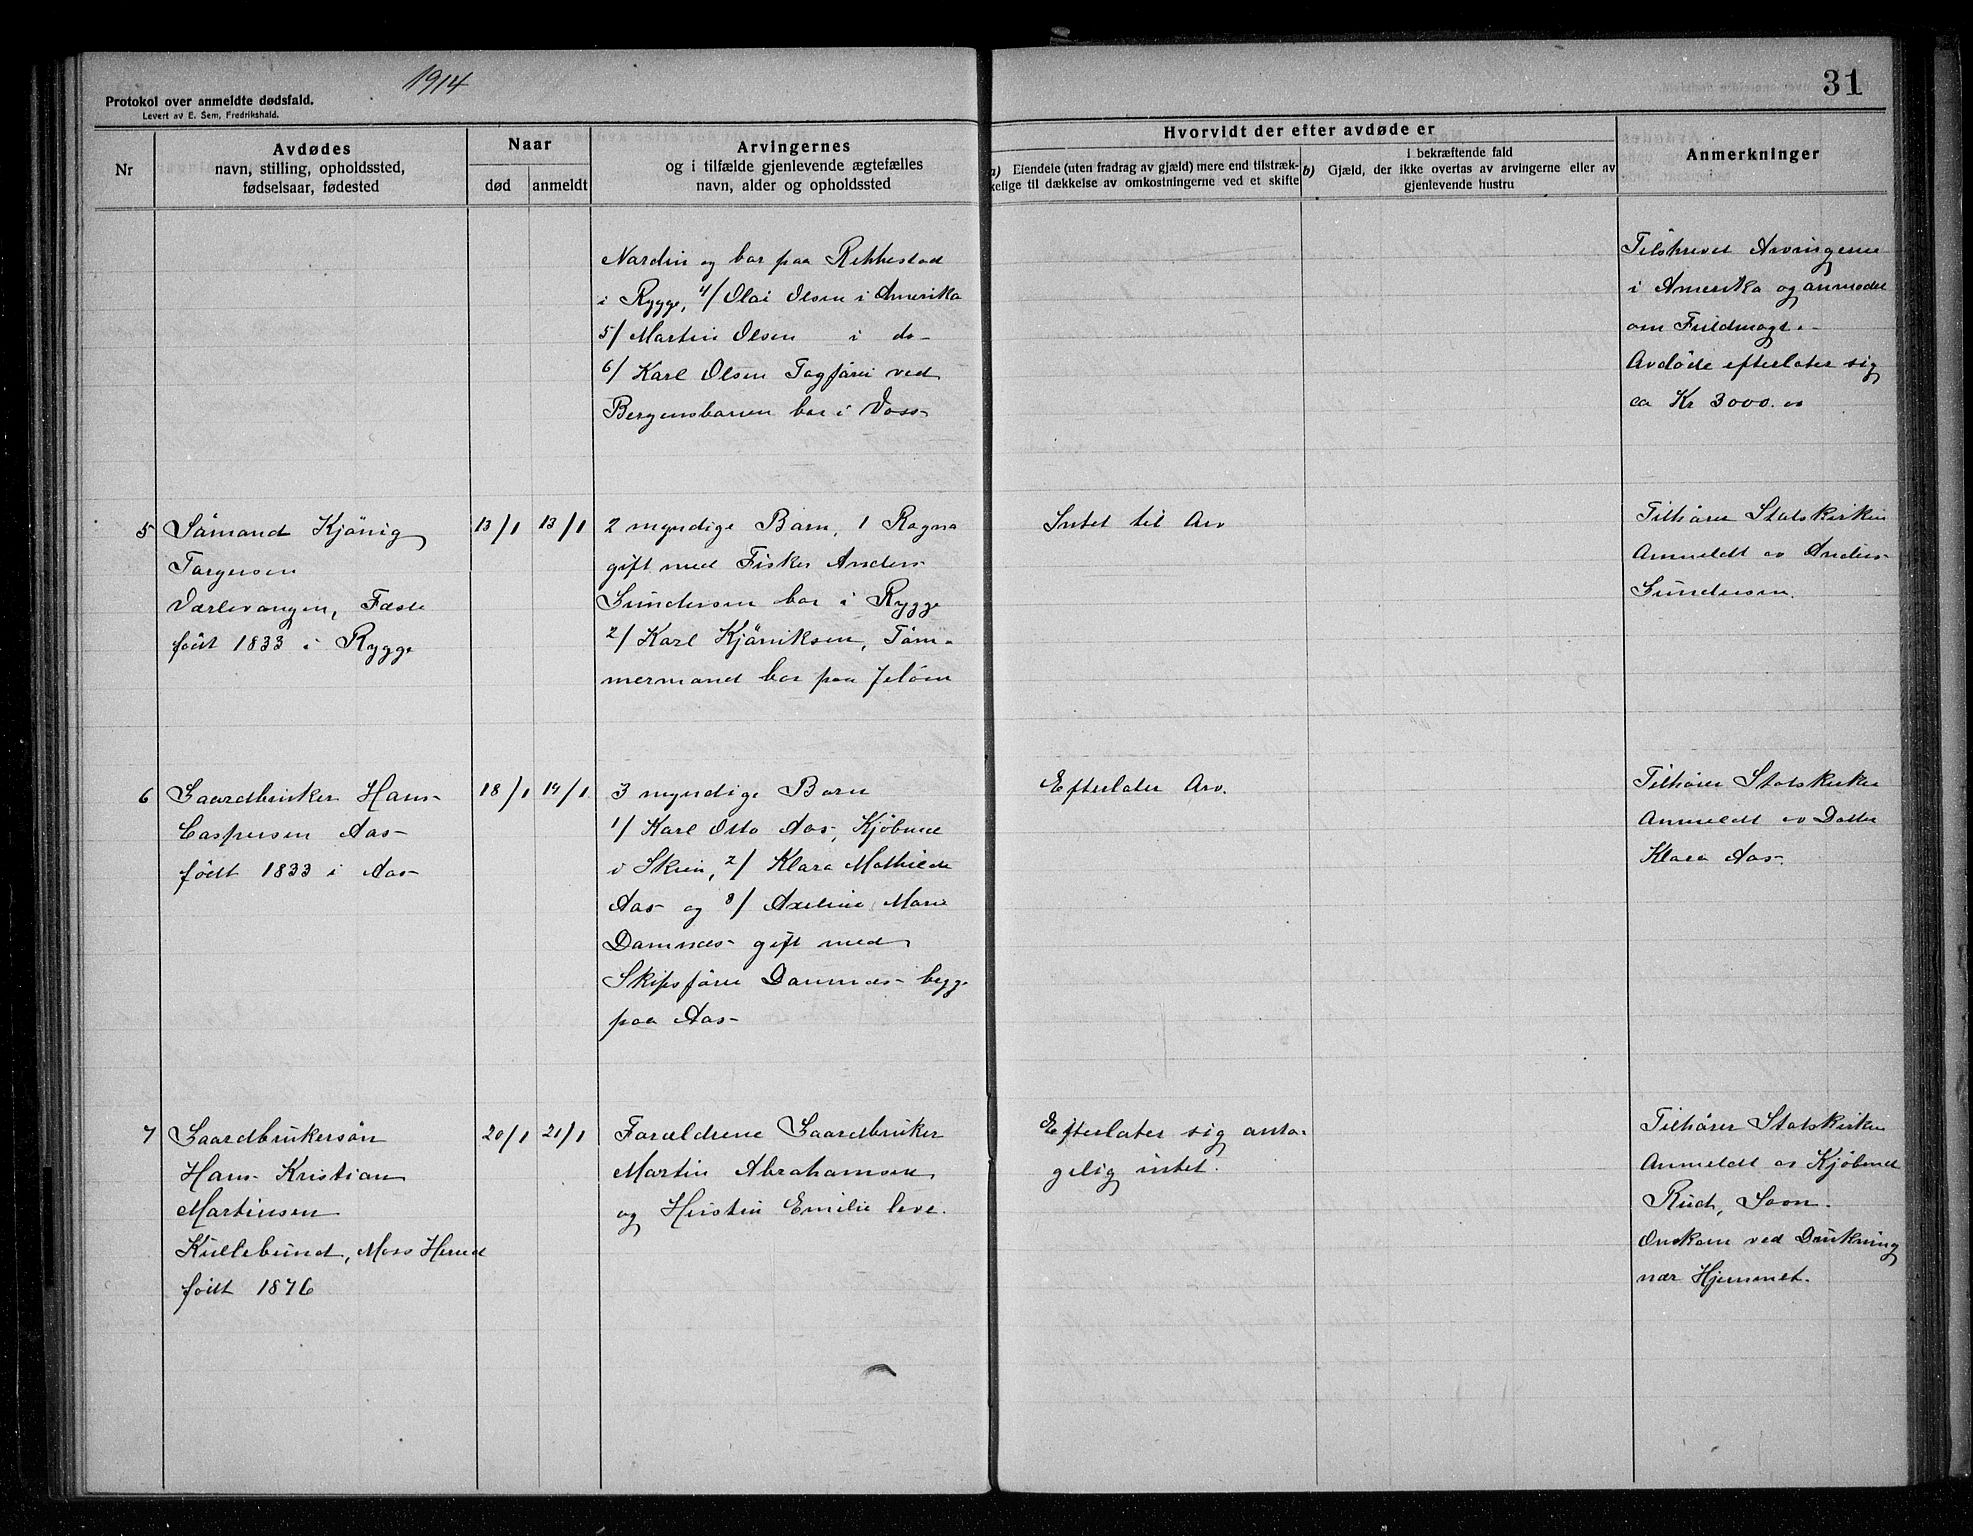 1914
Protokol over anmeldte dødsfald.
Levert av E. Sem, Fredrikshald.
31
Nr
Avdødes
navn, stilling, opholdssted,
fødselsaar, fødested
Naar
død
anmeldt
Arvingernes
og i tilfælde gjenlevende ægtefælles
navn, alder og opholdssted
Hvorvidt der efter avdøde er
a) Eiendele (uten fradrag av gjæld) mere end tilstræk-
kelige til dækkelse av omkostningerne ved et skifte
I bekræftende fald
b) Gjæld, der ikke overtas av arvingerne eller av
gjenlevende hustru
Anmerkninger
Nardin og bor paa Rekkestad
i Rygge, 4/ Olai Olsen i Amerika
5/ Martin Olsen i do-
6/ Karl Olsen Togfører ved
Bergensbanen bor i Voss-
Tilskrevet Arvingerne
i Amerika og anmodet
om Fuldmagt.-
Avdøde efterlater sig
ca Kr 3000.00
5
Sømand Kjönig
Torgersen
Værlevangen, Fæste
født 1833 i Rygge
13/1
13/1
2 myndige Barn, 1 Ragna
gift med Fisker Anders
Gundersen bor i Rygge
2/ Karl Kjöniksen, Tøm-
mermand bor paa Jeløen
Intet til Arv
Tilhører Statskirken
Anmeldt av Anders
Gundersen.
6
Gaardbruker Hans
Caspersen Aas-
født 1833 i Aas-
18/1
19/1
3 myndige Barn
1/ Karl Otto Aas, Kjøbmd
i Skien, 2/ Klara Mathilde
Aas- og 3/ Axeline Marie
Damnæs- gift med
Skipsfører Damnæs- begge
paa Aas-
Efterlater Arv.
Tilhører Statskirken
Anmeldt av Datter
Klara Aas-
7
Gaardbrukersøn
Hans Kristian
Martinsen
Kullebund, Moss Herred
født 1876
20/1
21/1
Forældrene Gaardbruker
Martin Abrahamsen
og Emilie leve.
Efterlater sig anta-
gelig intet.
Tilhører Statskirken
Anmeldt av Kjøbmd
Rud, Soon.
Omkom ved Drukning
nær Hjemmet.